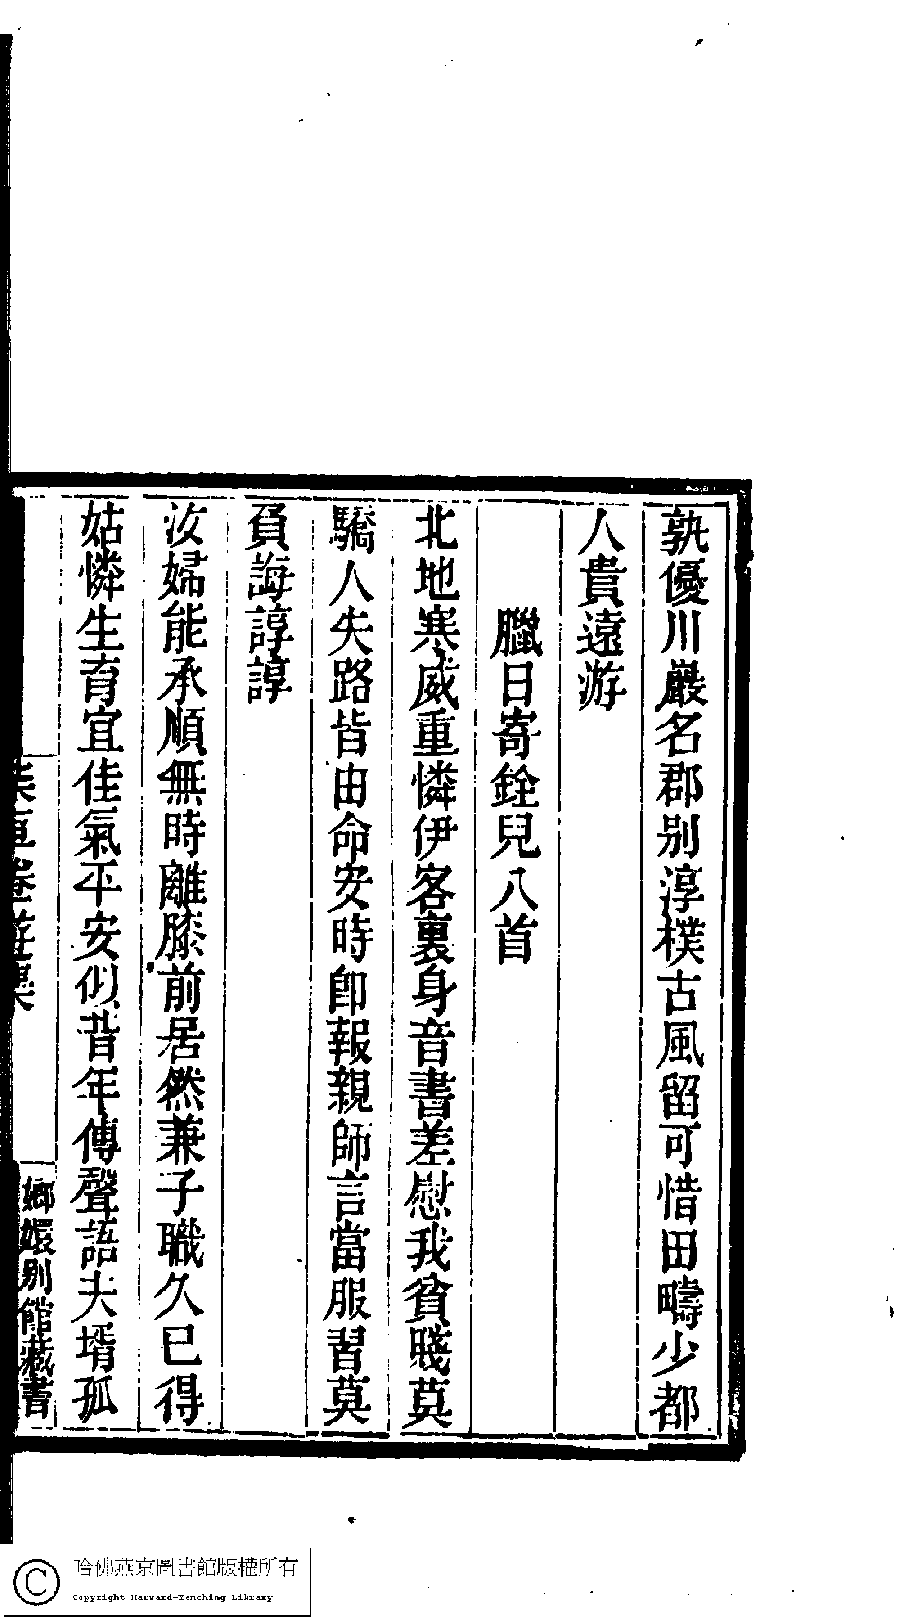 孰優川巖名郡别淳樸古風留可惜田疇少都
人貴遠游
臘日寄銓兒八首
北地寒威重憐伊客裏身音書差慰我貧賤莫
驕人失路皆由命安時即報親師言當服習莫
負誨諄諄
汝婦能承順無時離膝前居然兼子職久已得
姑憐生育宜佳氣平安似昔年傳聲語夫壻孤
嫏嬛别館藏書
哈佛燕京圖書館版權所有
Copyright Harvard-Yenching Library